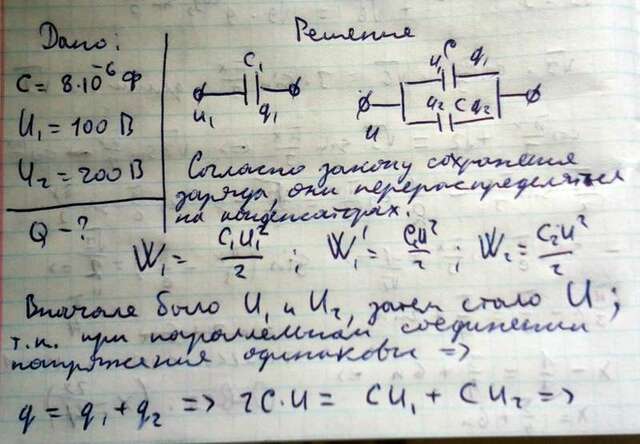 Дано:
Решение
C = 8·10⁻⁶ Ф
U₁ = 100 В
U₂ = 200 В
Q - ?
C₁
U₁ q₁
C
U₁ q₁
U₂ C q₂
U
Согласно закону сохранения
заряда, они перераспределяться
на конденсаторах.
W₁ = C₁U₁²/2 ; W₁' = C₁U²/2 ; W₂ = C₂U²/2
Вначале было U₁ и U₂, затем стало U ;
т.к. при параллельном соединении
напряжения одинаковы =>
q = q₁ + q₂ => 2C·U = CU₁ + CU₂ =>